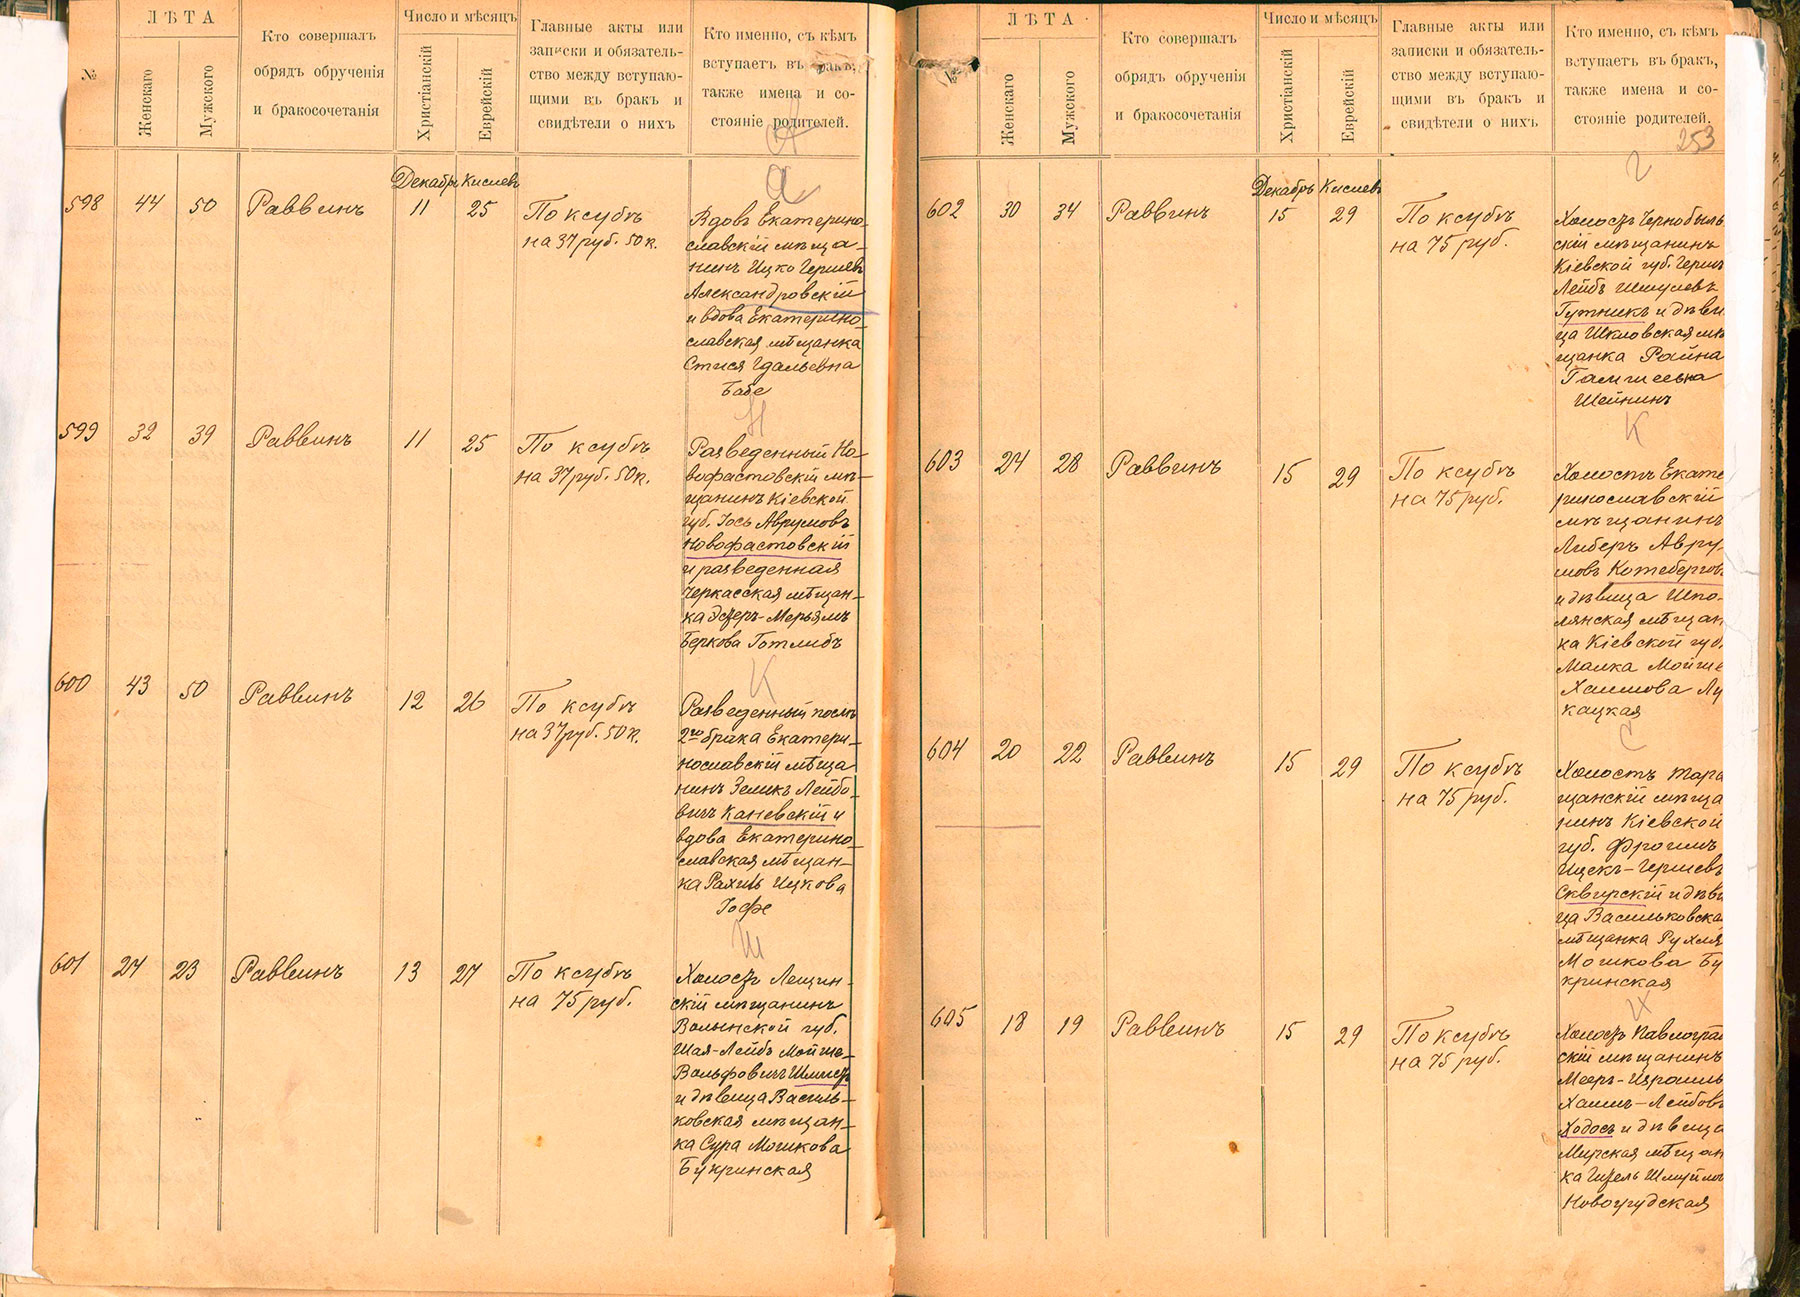 №
ЛѢТА
Женскаго
Мужского
Кто совершалъ
обрядъ обрученія
и бракосочетанія
Число и мѣсяцъ
Христіанскій
Еврейскій
Главные акты или
записки и обязатель-
ство между вступаю-
щими въ бракъ и
свидѣтели о нихъ
Кто именно, съ кѣмъ
вступаетъ въ бракъ,
также имена и со-
стояніе родителей.
а
Декабрь Кислевъ
598 44 50 Раввинъ 11 25
По ксубѣ
на 37 руб. 50 к.
Вдовъ Екатерино-
славскій мѣща-
нинъ Ицко Гершевъ
Александровскій
и вдова Екатерино-
славская мѣщанка
Стися Гдальевна
Бабе
Н
599 32 39 Раввинъ 11 25
По ксубѣ
на 37 руб. 50 к.
Разведенный Но-
вофастовскій мѣ-
щанинъ Кіевской
губ. Іось Аврумовъ
Новофастовскій
и разведенная
Черкасская мѣщан-
ка Эстеръ-Мерьямъ
Беркова Готлибъ
К
600 43 50 Раввинъ 12 26
По ксубѣ
на 37 руб. 50 к.
Разведенный послѣ
2го брака Екатери-
нославскій мѣща
нинъ Зеликъ Лейбо-
вичъ Каневскій и
вдова Екатерино-
славская мѣщан-
ка Рахиль Ицкова
Іофе
Ш
601 24 23 Раввинъ 13 27
По ксубѣ
на 75 руб.
Холостъ Лещин-
скій мѣщанинъ
Волынской губ.
Шая-Лейбъ Мойше-
Вольфовичъ
и дѣвица Василь-
ковская мѣщан-
ка Сура Мошкова
Букринская
№
ЛѢТА
Женскаго
Мужского
Кто совершалъ
обрядъ обрученія
и бракосочетанія
Число и мѣсяцъ
Христіанскій
Еврейскій
Главные акты или
записки и обязатель-
ство между вступаю-
щими въ бракъ и
свидѣтели о нихъ
Кто именно, съ кѣмъ
вступаетъ въ бракъ,
также имена и со-
стояніе родителей.
253
Г
Декабрь Кислевъ
602 30 34 Раввинъ 15 29
По ксубѣ
на 75 руб.
Холостъ Чернобыль
скій мѣщанинъ
Кіевской губ. Гершъ
Лейбъ Шмулевъ
Гутникъ и дѣви
ца Шкловская мѣ
щанка Райна
Шейнинъ
К
603 24 28 Раввинъ 15 29
По ксубѣ
на 75 руб.
Холостъ Екате
ринославскій
мѣщанинъ
Либеръ Авру-
мовъ
и дѣвица Шпо-
лянская мѣщан
ка Кіевской губ.
Малка Мойше
Хаимова Лу
кацкая
С
604 20 22 Раввинъ 15 29
По ксубѣ
на 75 руб.
Холостъ Тара
щанскій мѣща
нинъ Кіевской
губ. Фроимъ
Ицекъ-Гершевъ
Сквирскій и дѣви
ца Васильковска
мѣщанка Рухля
Мошкова Бу
кринская
Х
605 18 19 Раввинъ 15 29
По ксубѣ
на 75 руб.
Холостъ Павлоград
скій мѣщанинъ
Мееръ-Израиль
Хаимъ-Лейбовъ
Ходосъ и дѣвица
Мирская мѣщан
ка Гитель Шмуйлов
Новогрудская